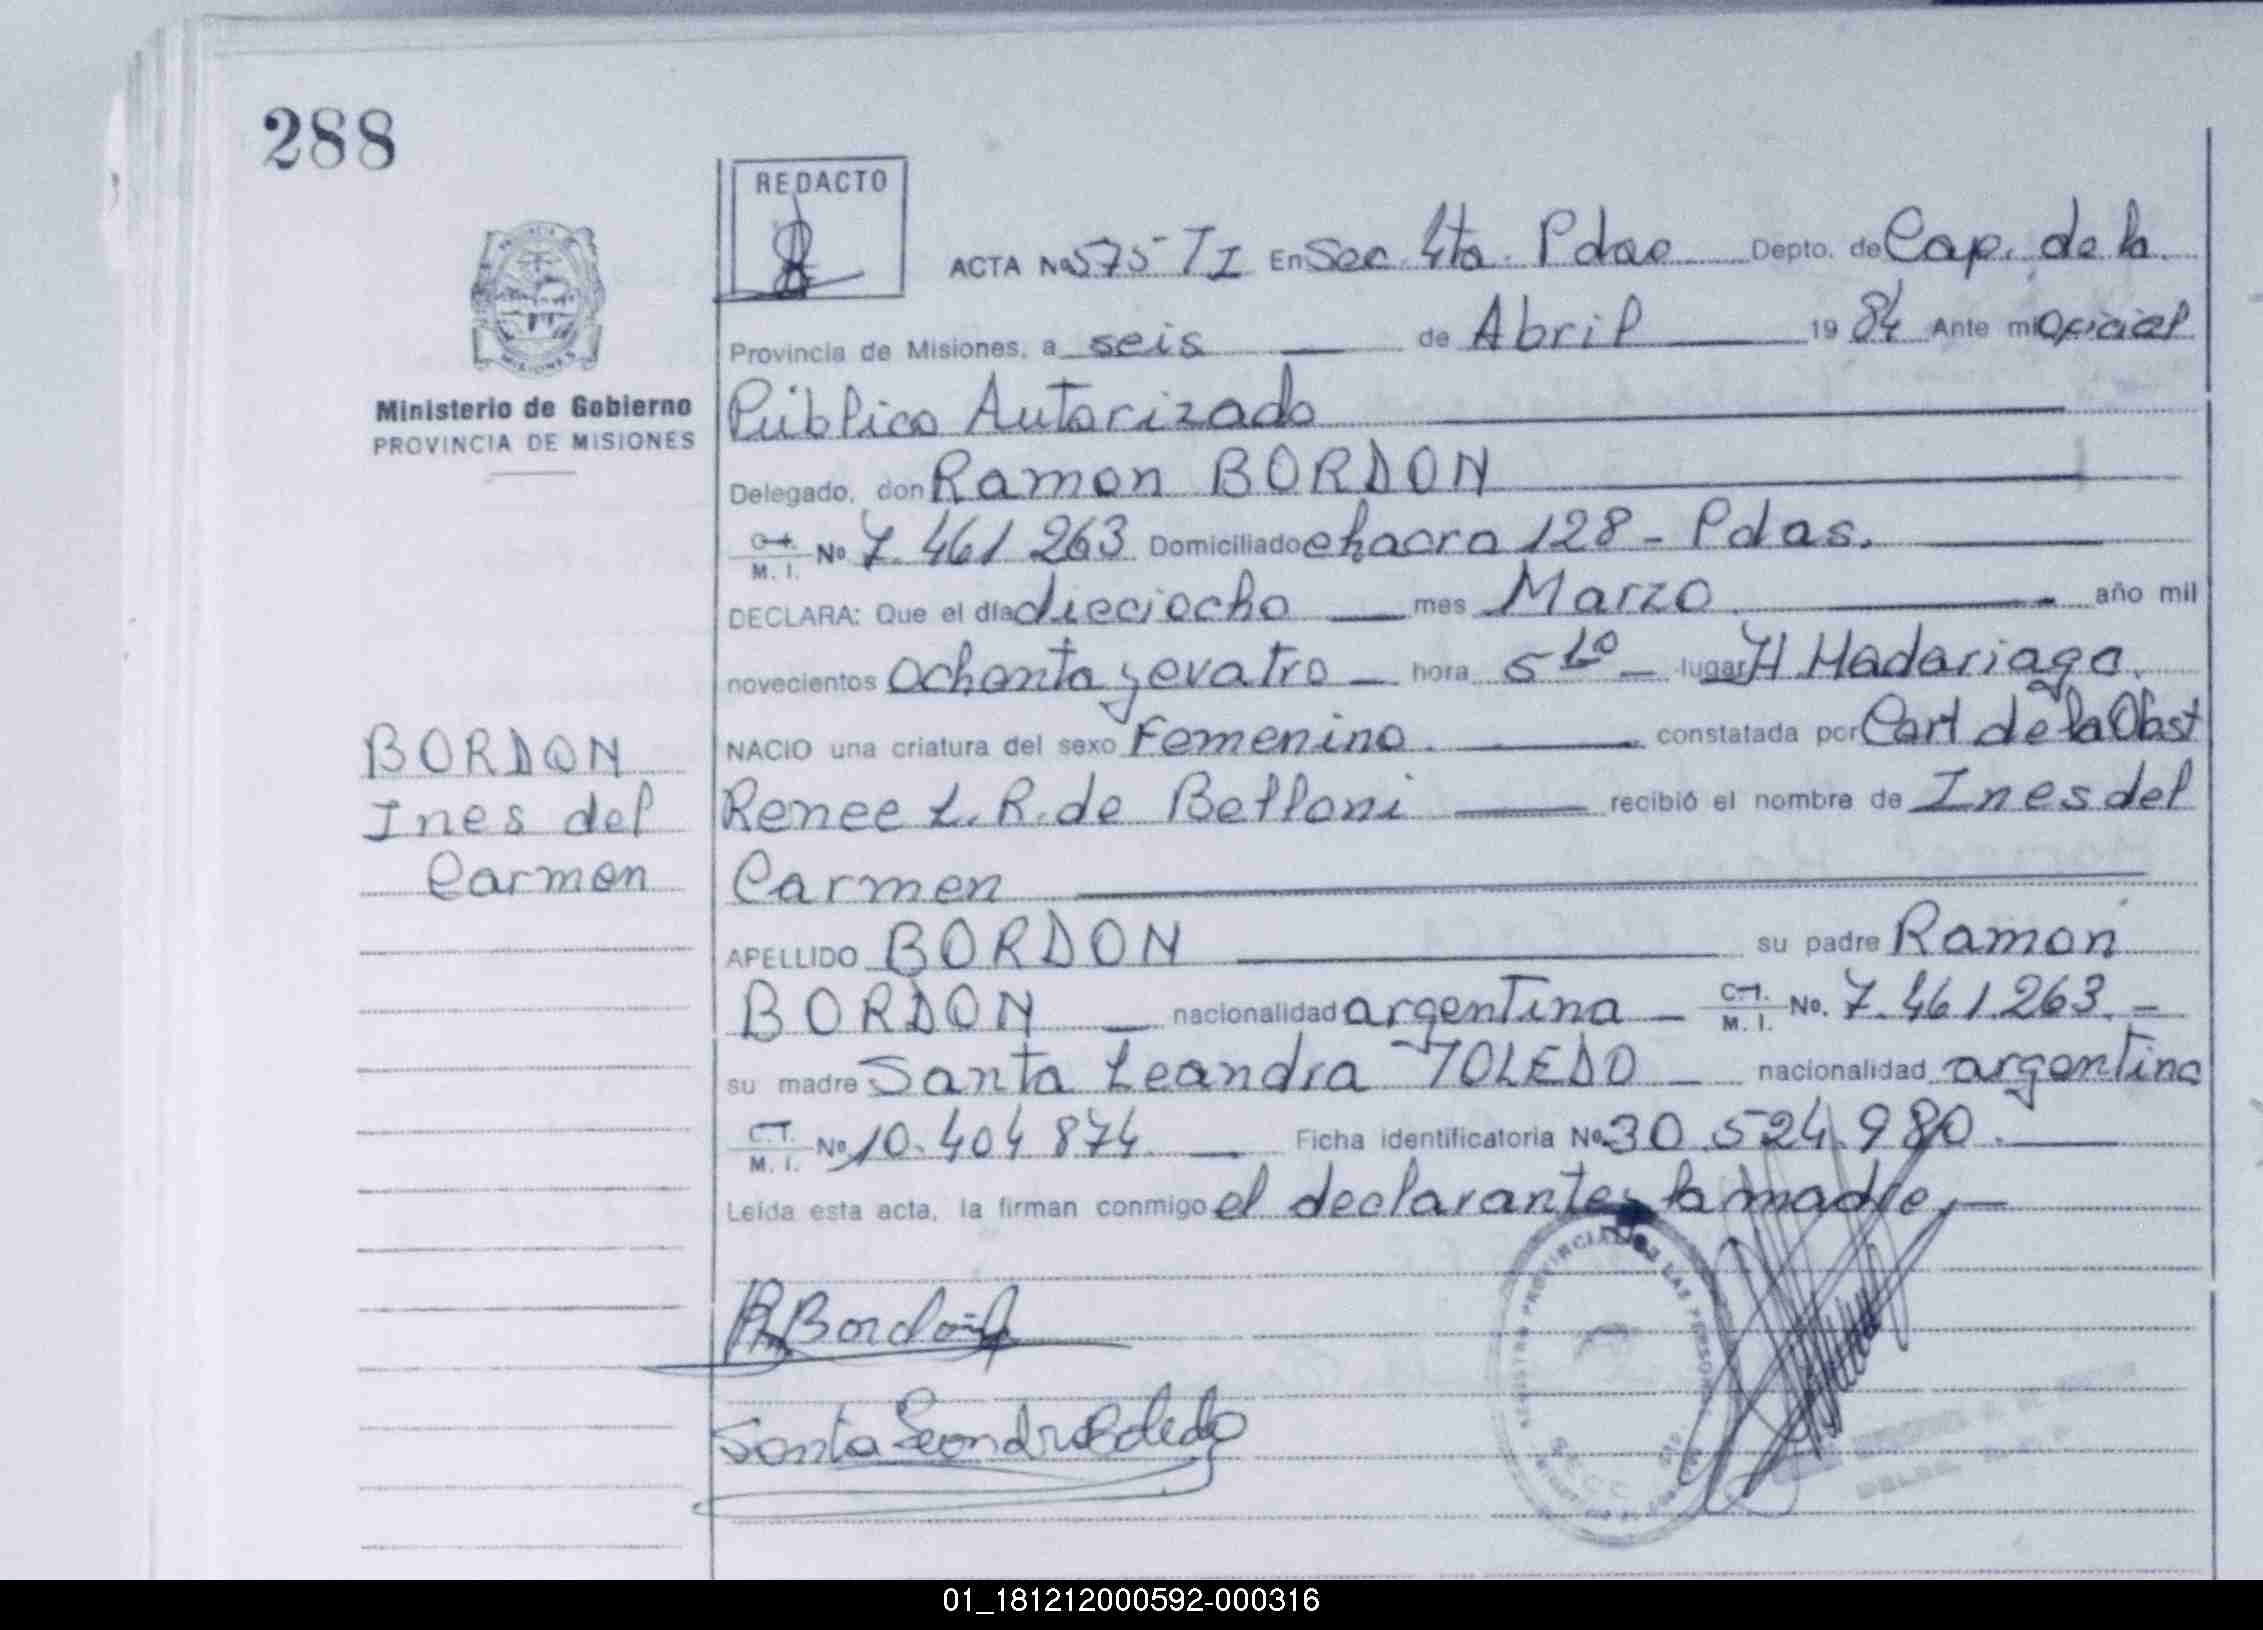 288
REDACTO
ACTA No 575 TI En Sec. 4ta. Pdas Depto. de Cap. de la
Provincia de Misiones, a seis de Abril 19 84 Ante mi Oficial
Público Autorizado
Ministerio de Gobierno
PROVINCIA DE MISIONES
Delegado, don Ramon BORDON
M. I. No 7.461 263 Domiciliado chacra 128 - Pdas.
DECLARA: Que el día dieciocho mes Marzo año mil
novecientos Ochenta y cuatro hora 5 lugar H. Madariaga.
NACIO una criatura del sexo Femenino constatada por Cert de la Obst
Renee L. R. de Belloni recibió el nombre de Ines del
Carmen
BORDON
Ines del
Carmen
APELLIDO BORDON su padre Ramon
BORDON nacionalidad argentina C.I. M. I. No. 7.461.263.
su madre Santa Leandra TOLEDO nacionalidad argentina
C.I. M. I. No 10.404 874 Ficha identificatoria No 30.524.980.
Leída esta acta, la firman conmigo el declarante y la madre.
R Bordon
Santa Leandra Toledo
01_181212000592-000316